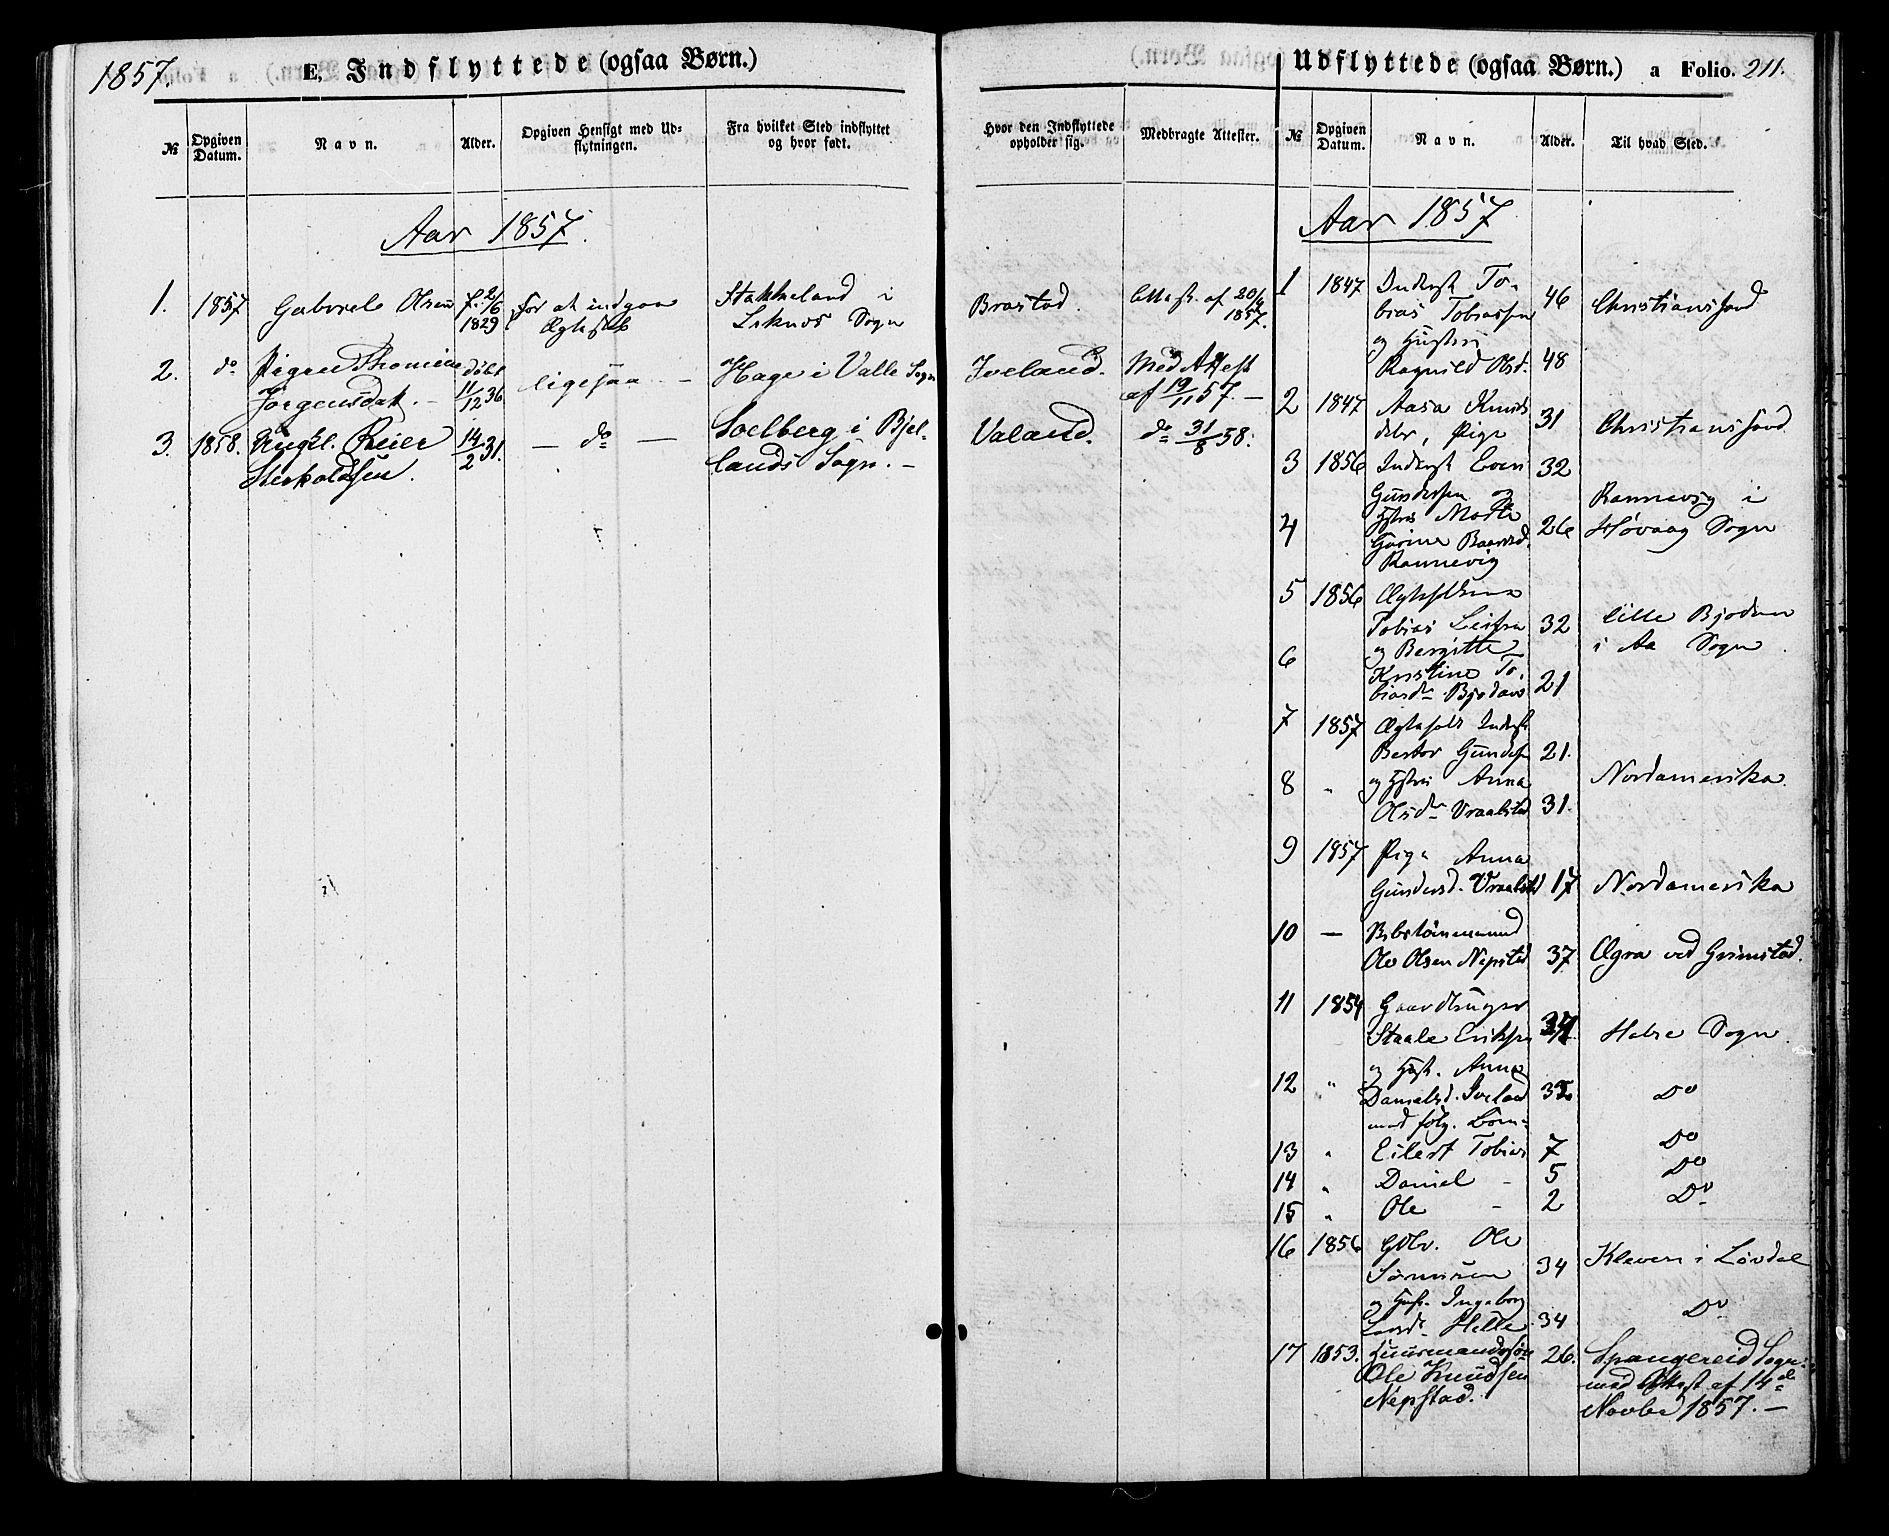 1857.
E, Indflyttede (ogsaa Børn.)
№
Opgiven Datum.
Navn.
Alder.
Opgiven Hensigt med Ud-
flytningen.
Fra hvilket Sted indflyttet
og hvor født.
Hvor den Indflyttede
opholder sig.
Medbragte Attester.
Aar 1857.
1. 1857 Gabriel Olsen f. 2/6 1829 For at indgaae Ægteskab Stakkeland i Sogn Brastad. Attest. af 20/4 1857.
2. do Pigen Thomine Jørgensdat. – døbt 11/12 36 ligesaa – Hage i Valle Sogn Iveland. Med Attest af 19/11 57. –
3. 1858. Ungkl. Reier 14/2 31. – do – Solberg i Bjel-
lands Sogn. – Valand. do 31/8 58.
Udflyttede (ogsaa Børn.) a Folio. 211.
№
Opgiven
Datum.
Navn.
Alder.
Til hvad Sted.
Aar 1857
1 1847 Inderst To-
bias Tobiassen 46 Christianssand
og Hustru
Ragnild Olsd. 48
2 1847 Aasa Knuds
datr, Pige 31 Christianssand
3 1856 Inderst Even 32
Gundersen og Rannevig i
4 Hstru 26 Høvaag Sogn
Rannevig
5 1856
Tobias 32 Lille
6 og Bergitte i Aa Sogn
Kristine To-
biasdr 21
7 1857 Ægtefolk Inderst
Gunders. 21.
8 " og Hstru Anna Nordamerika.
Olsdr Vraalstad 31.
9 1857 Pige Anna
Gundersd. Vraalstad 17 Nordamerika
10 —
Ole Olsen Nepstad 37 Ægra ved Grimstad.
11 1854 Gaardbruger
Staale Eriksen Sogn
12 " og Hust. Anna
Danielsd. Iveland Do
med følg. Børn:
13 " Eilert Tobias 7 Do
14 " Daniel – 5 Do
15 " Ole – 2 Do
16 1856 Gdbr. Ole
34 Kleven i
og Hust. Ingeborg Do
Helle 34
17 1853. Huusmandssøn 26. Spangereid Sogn
Ole Knudsen med Attest af 14de
Nepstad. Novber 1857. –